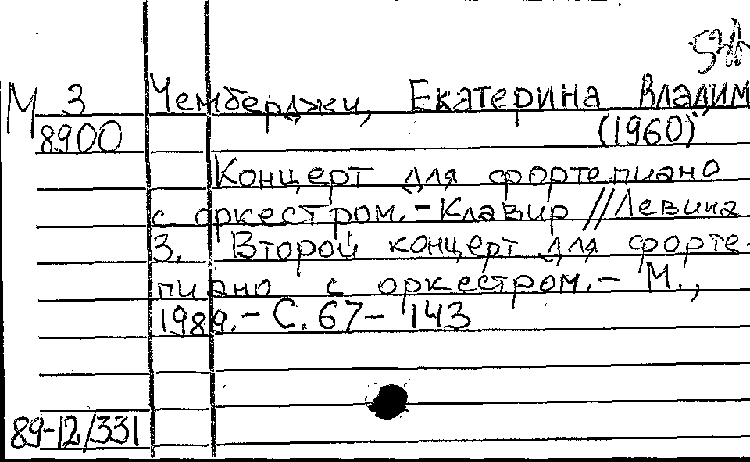 М 3 Чемберджи, Екатерина Владим
8900 (1960)
Концерт для фортепиано
с оркестром.-Клавир //Левина
З. Второй концерт для форте-
пиано с оркестром.- М.,
1989.- С.67- 143
89-12/331